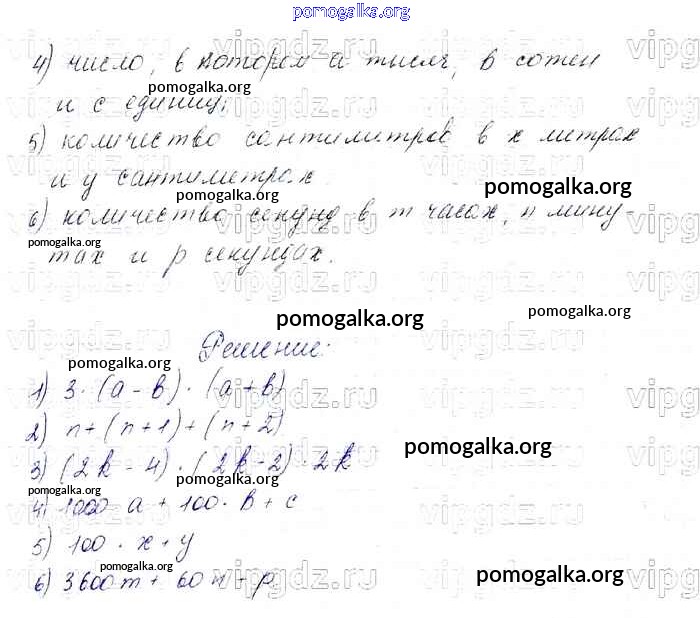 pomogalka.org
4) число, в котором a тысяч, b сотен
и c единиц;
5) количество сантиметров в x метрах
и y сантиметрах.
6) количество секунд в m часах, n мину
тах и p секундах.
Решение:
1) 3 · (a - b) · (a + b)
2) n + (n + 1) + (n + 2)
3) (2k - 4) · (2k - 2) · 2k
4) 1000 a + 100 · b + c
5) 100 · x + y
6) 3600m + 60n + p
pomogalka.org
pomogalka.org
pomogalka.org
pomogalka.org
pomogalka.org
pomogalka.org
pomogalka.org
pomogalka.org
pomogalka.org
pomogalka.org
pomogalka.org
pomogalka.org
vipgdz.ru